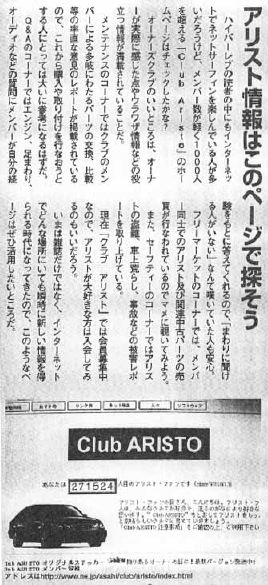 アリスト情報はこのページで探そう
ハイパーレブの読者の中にもインターネッ
トでネットサーフィンを楽しんでいる人が多
いだろうけど、メンバー数が軽く1000人
を超える「Club Aristo」のホー
ムページはチェックしたかな？
オーナーズクラブのいいところは、オーナ
ーが実際に感じた点やウラワザ情報などの役
立つ情報が満載されていることだ。
メンテナンスのコーナーではクラブのメン
バーによる多岐にわたるパーツの交換、比較
等の率直な意見のレポートが掲載されている
ので、これから購入や取り付けを行なおうと
する人にとっては大いに参考になるはずだ。
Q&Aのコーナーではエンジン、足まわり、
オーディオなどの質問にメンバーが自分の経
験をもとに答えてくれるので、「まわりに聞け
る人がいない」なんて嘆いていた人も安心。
フリーマーケットのコーナーでは、メンバ
ー同士でのアリスト及び関連中古パーツの売
買が行なわれているのでマメに覗いてみよう。
また、セーフティのコーナーではアリス
トの盗難、車上荒らし、事故などの被害レポ
ートを取り上げている。
現在「クラブ アリスト」では会員募集中
なので、アリストが大好きな方は入会してみ
るのもいいだろう。
いまは雑誌だけではなく、インターネット
でどんな場所にいても瞬時に新しい情報を得
られる時代になってきたので、このようなペ
ージはぜひ活用したいところだ。
Club ARISTO
あなたは 271524 人目のアリスト・ファンです
Club ARISTO オリジナルステッカー
Club ARISTO メンバー情報
アドレスはhttp://www.ne.jp/asahi/club/aristo/index.html